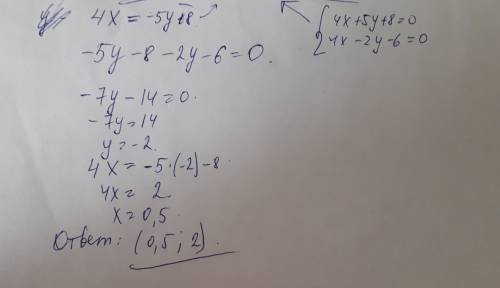 4x = -5y-8
{ 4x+5y+8=0
4x-2y-6=0
-5y-8-2y-6=0.
-7y-14=0.
-7y=14
y=-2.
4x=-5·(-2)-8
4x= 2
x=0,5.
Ответ: (0,5; 2).